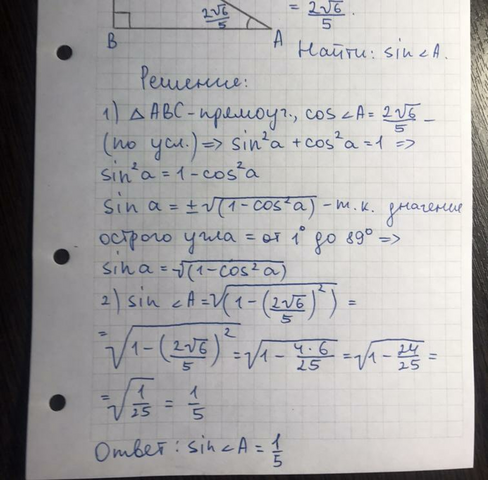 2√6/5 = 2√6/5.
B A
Найти: sin∠A.
Решение:
1) △ABC-прямоуг., cos∠A=2√6/5 –
(по усл.) => sin²a + cos²a = 1 =>
sin²a = 1 - cos²a
sin a = ±√(1-cos²a) - т.к. значение
острого угла = от 1° до 89° =>
sin a = √(1-cos²a)
2) sin ∠A = √(1-(2√6/5)²) =
= √1-(2√6/5)² = √1-4·6/25 = √1-24/25 =
= √1/25 = 1/5
Ответ: sin∠A = 1/5